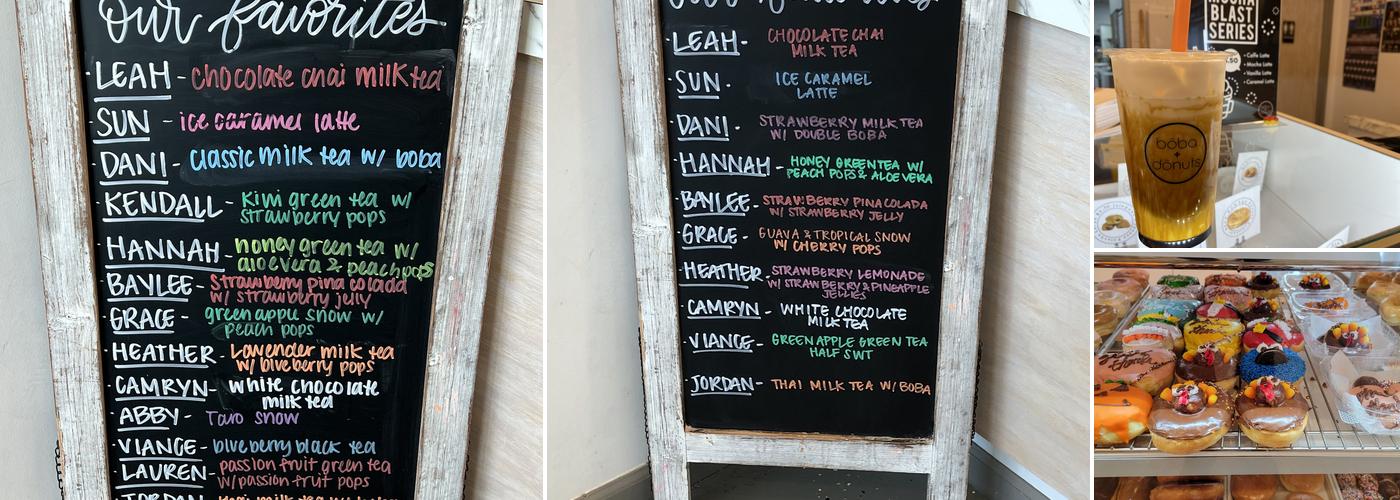 our favorites
LEAH - chocolate chai milk tea
SUN - ice caramel latte
DANI - classic milk tea w/ boba
KENDALL - kiwi green tea w/
strawberry pops
HANNAH - honey green tea w/
aloe vera & peach pops
BAYLEE - Strawberry pina colada
w/ strawberry jelly
GRACE - green apple snow w/
peach pops
HEATHER - Lavender milk tea
w/ blueberry pops
CAMRYN - white chocolate
milk tea
ABBY - Taro snow
VIANCE - blueberry black tea
LAUREN - passion fruit green tea
w/ passion fruit pops
JORDAN
LEAH - CHOCOLATE CHAI
MILK TEA
SUN - ICE CARAMEL
LATTE
DANI - STRAWBERRY MILK TEA
W/ DOUBLE BOBA
HANNAH - HONEY GREEN TEA W/
PEACH POPS & ALOE VERA
BAYLEE - STRAWBERRY PINA COLADA
W/ STRAWBERRY JELLY
GRACE - GUAVA & TROPICAL SNOW
W/ CHERRY POPS
HEATHER - STRAWBERRY LEMONADE
W/ STRAWBERRY & PINEAPPLE
JELLIES
CAMRYN - WHITE CHOCOLATE
MILK TEA
VIANCE - GREEN APPLE GREEN TEA
HALF SWT
JORDAN - THAI MILK TEA W/ BOBA
MOCHA
BLAST
SERIES
.50
• Caffe Latte
• Mocha Latte
• Vanilla Latte
• Caramel Latte
bōba
+
dōnuts